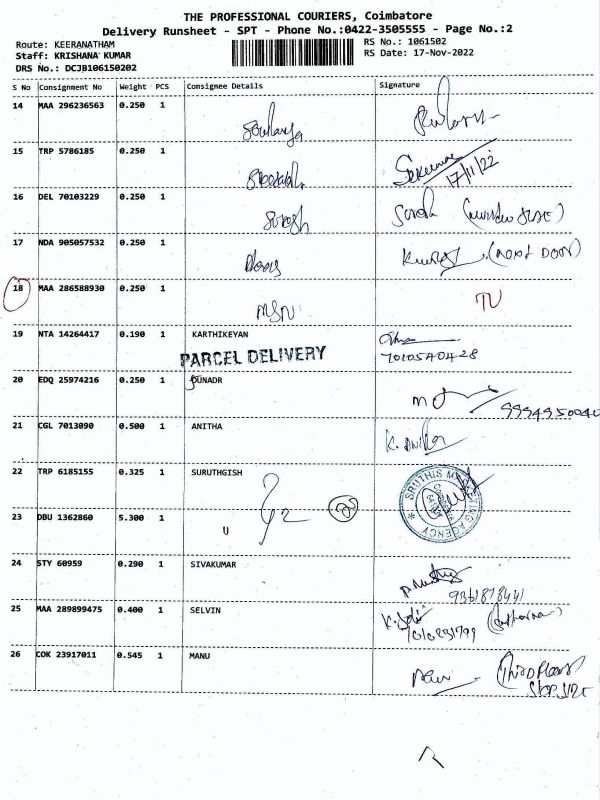 THE PROFESSIONAL COURIERS, Coimbatore
Delivery Runsheet - SPT - Phone No.:0422-3505555 - Page No.:2
Route: KEERANATHAM
RS No.: 1061502
Staff: KRISHANA KUMAR
RS Date: 17-Nov-2022
DRS No.: DCJB106150202
S No Consignment No Weight PCS Consignee Details Signature
14 MAA 296236563 0.250 1
15 TRP 5786185 0.250 1
17/11/22
16 DEL 70103229 0.250 1 Suresh
17 NDA 905057532 0.250 1 (Next DOOR)
18 MAA 286588930 0.250 1 MSN
19 NTA 14264417 0.190 1 KARTHIKEYAN
PARCEL DELIVERY 7010540428
20 EDQ 25974216 0.250 1 OUNADR
21 CGL 7013090 0.500 1 ANITHA K. Anitha
22 TRP 6185155 0.325 1 SURUTHGISH
23 DBU 1362860 5.300 1
24 STY 60959 0.290 1 SIVAKUMAR
9361878441
25 MAA 289899475 0.400 1 SELVIN
26 COK 23917011 0.545 1 MANU
(Third Floor